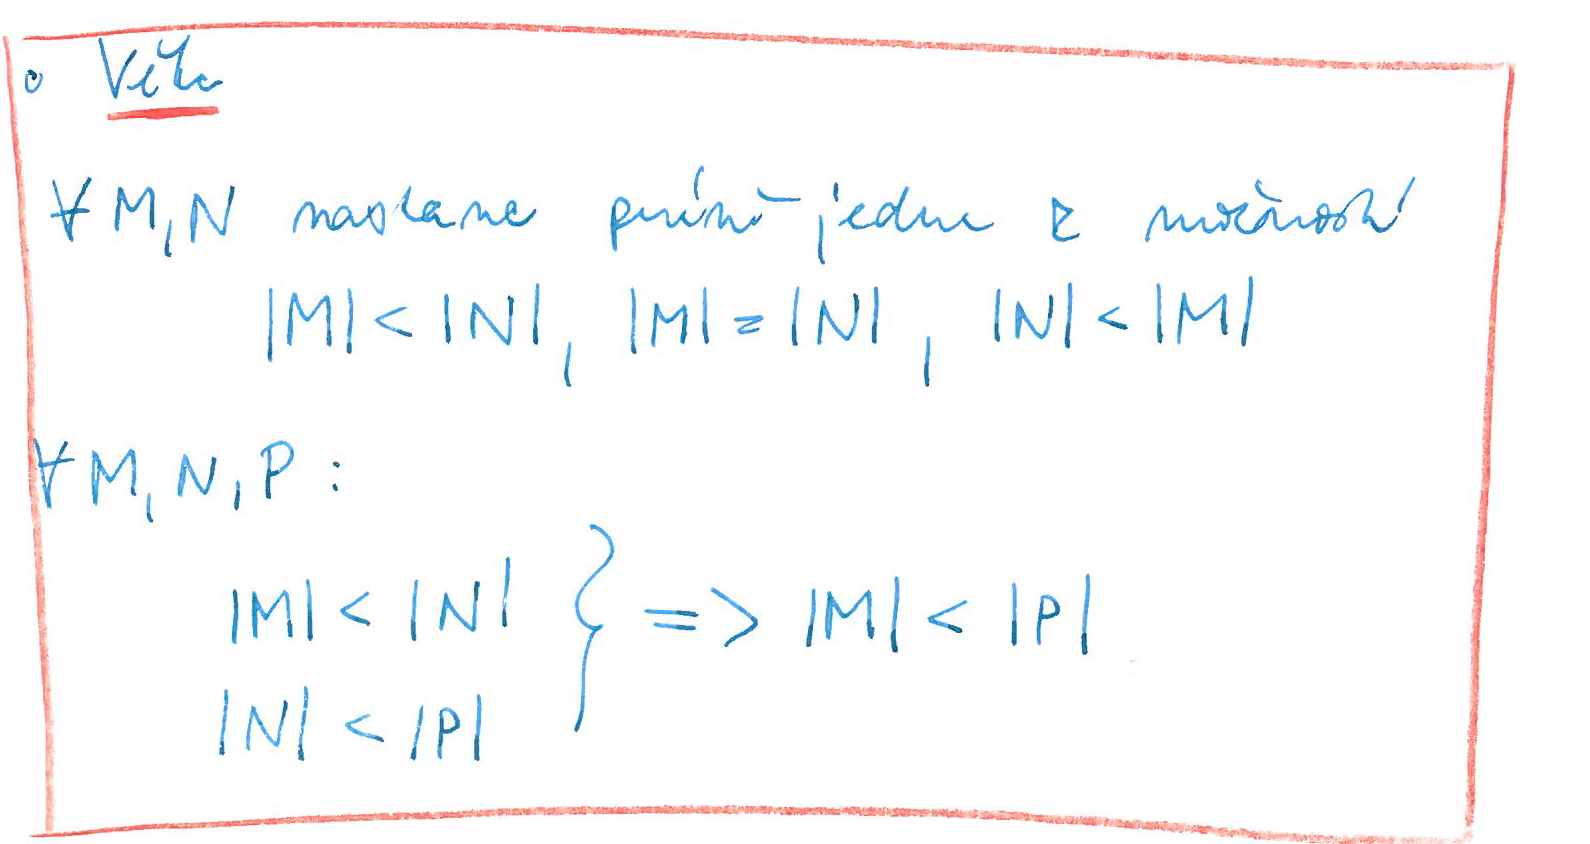 ◦ Věta
∀ M, N nastane právě jedna z možností
|M| < |N|, |M| = |N|, |N| < |M|
∀ M, N, P :
|M| < |N| } => |M| < |P|
|N| < |P|